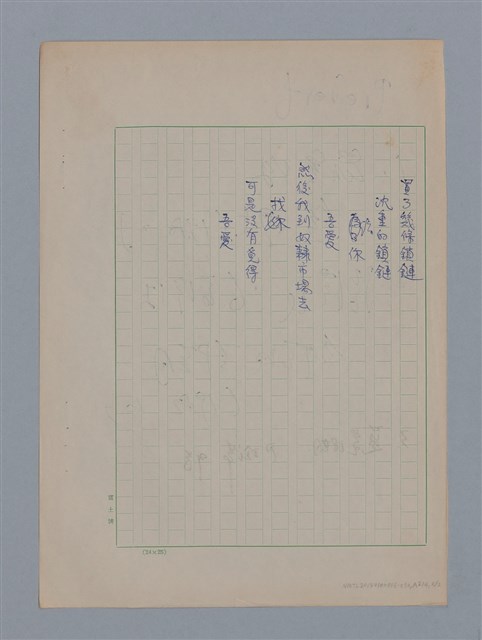 買了幾條鎖鏈
沈重的鎖鏈
為你
吾愛
然後我到奴隸市場去
找你
可是沒有覓得
吾愛